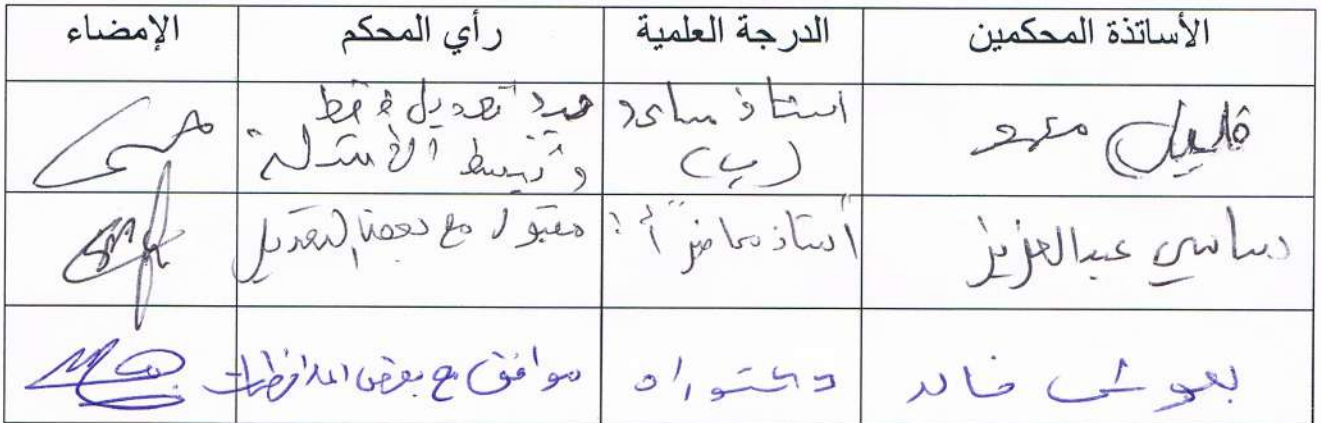 الأساتذة المحكمين الدرجة العلمية رأي المحكم الإمضاء
قليل محمد استاذ مساعد جيد تعديل فقط
(ب) وتبسيط الأسئلة
ساسي عبدالعزيز أستاذ محاضر "أ" مقبول مع بعض التعديل
بعوشي خالد دكتوراه موافق مع بعض الملاحظات